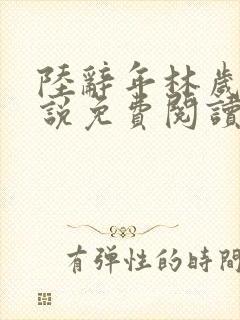 陸辭年林歲
說免費閱讀
有弹性的時間